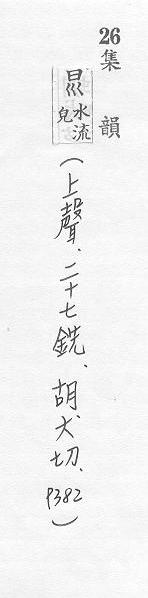 26集韻
水流皃
（上聲、二十七銑、胡犬切、P382）